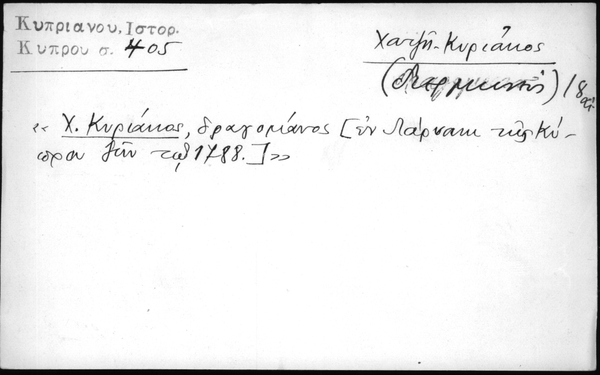 Κυπριανου, Ιστορ.
Κυπρου σ. 405
Χατζῆ-Κυριάκος
18 αἰ.
« Χ. Κυριάκος, δραγομάνος [ἐν Λάρνακι τῆς Κύ-
πρου ζῶν τῷ 1788.] »